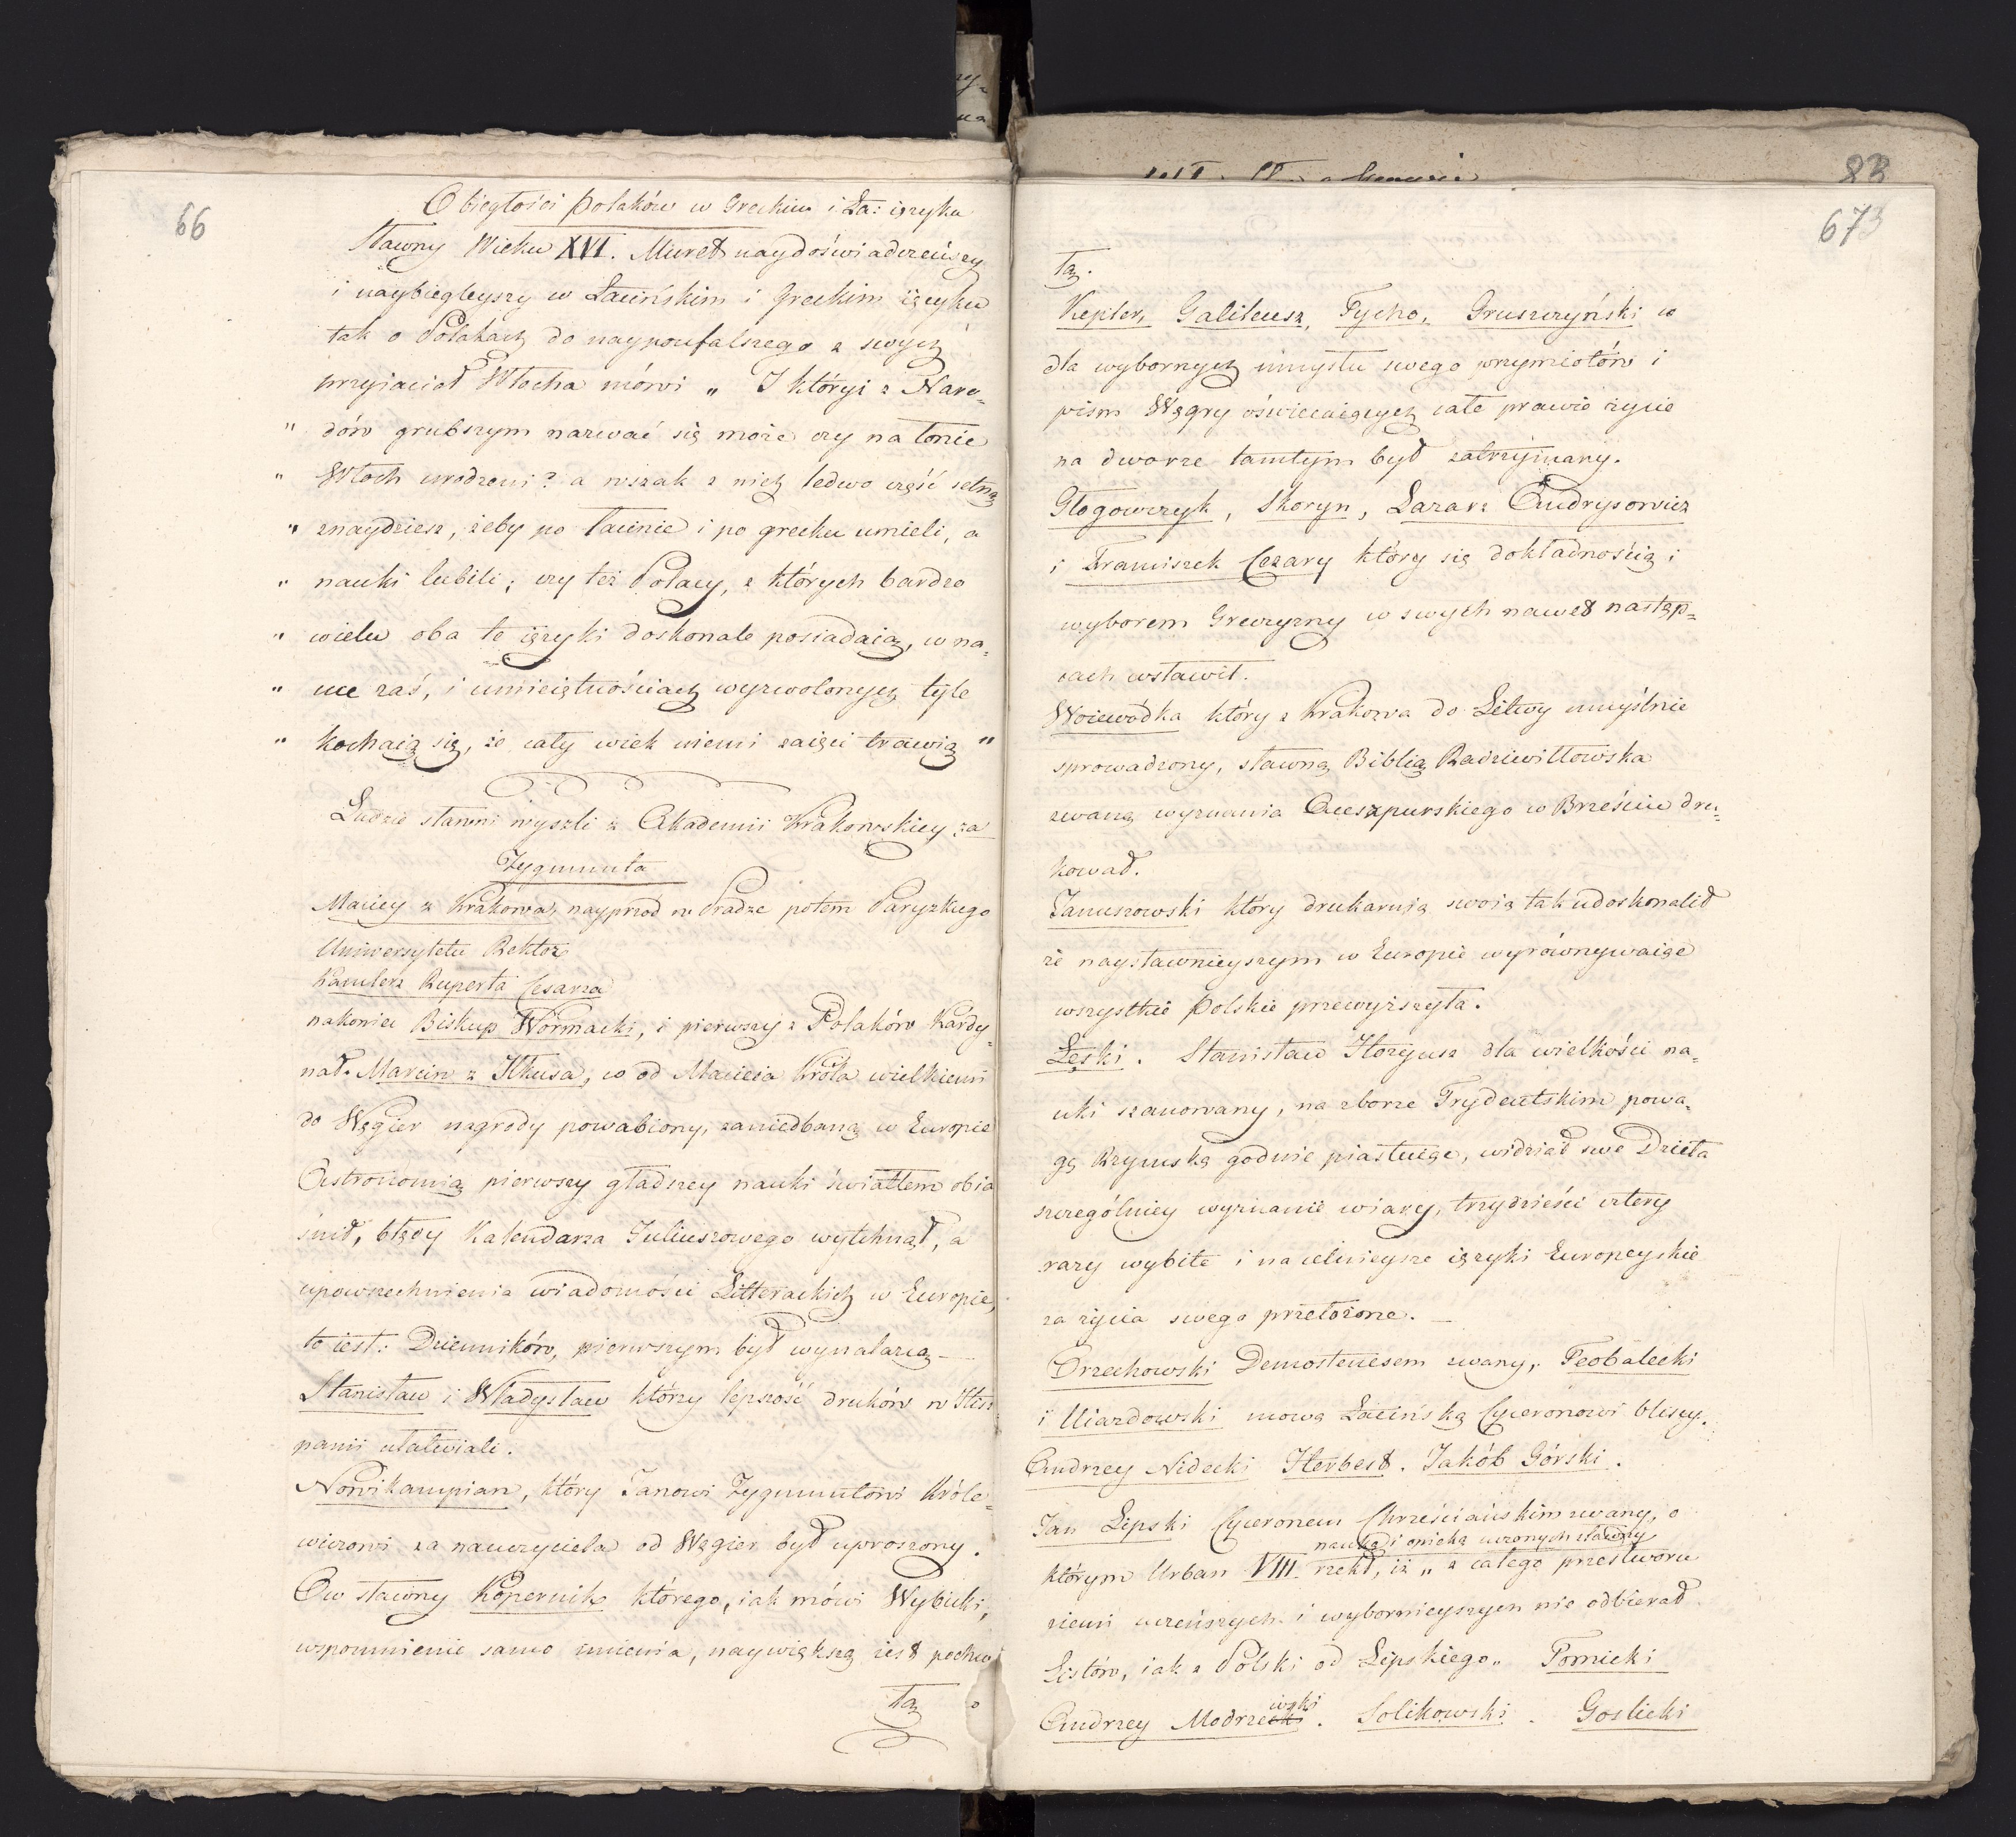 66
O biegłości Polaków w Greckim i Ła: ięzyku
Sławny Wieku XVI. Muret naydoświadczeńszy
i naybiegleyszy w Łacińskim i Greckim ięzyku
tak o Polakach do naypoufalszego z swych
przyiaciół Włocha mówi „ I któryż z Naro„
" dów grubszym nazwać się może czy na łonie
" Włoch urodzeni? a wszak z nich ledwo część setną
" znaydziesz, żeby po łacinie i po grecku umieli, a
" nauki lubili; czy też Polacy, z których bardzo
" wielu oba te ięzyki doskonale posiadaią, w na„
" uce zaś, i umieiętnościach wyzwolonych tyle
" kochaią się, że cały wiek niemi zaięci trawią "
Ludzie sławni wyszli z Akademii Krakowskiey za
Zygmunta
Maciey z Krakowa, nayprzod w Pradze potem Paryzkiego
Uniwersytetu Rektor
Kanclerz Ruperta Cesarza
nakoniec Biskup Wormacki, i pierwszy z Polaków Kardy„
nał. Marcin z Ilkusa, co od Macieia Króla wielkiemi
do Węgier nagrody powabiony, zaniedbaną w Europie
Astronomią pierwszy gładszey nauki światłem obia
śnił, błędy Kalendarza Juliuszowego wytchnął, a
upowszechnienia wiadomości Litterackich w Europie,
to iest: Dzienników, pierwszym był wynalazcą —
Stanisław i Władysław którzy lepszość druków w Hisz
panii ułatwiali.
Nowikampian, który Janowi Zygmuntowi Króle=
wiczowi za nauczyciela od Węgier był uproszony.
Ow sławny Kopernik którego, iak mówi Wybicki,
wspomnienie samo imienia, naywiększą iest pochwa
łą
83
673
łą.
Kepler, Galileusz, Tycho, Gruszczyński co
dla wybornych umysłu swego przymiotów i
pism Węgry oświecaiących całe prawie życie
na dworze tamtym był zatrzymany.
Głogowczyk, Skoryn, Łazarz Andrysowicz
i Franciszek Cezary który się dokładnością i
wyborem Greczyzny w swych nawet następ=
cach wsławił.
Woiewodka który z Krakowa do Litwy umyślnie
sprowadzony, sławną Biblią Radziwiłłowska
zwaną wyznania Auszpurskiego w Brześciu dru=
kował.
Januszowski który drukarnią swoią tak udoskonalił
że naysławnieyszym w Europie wyrównywaiąc
wszystkie Polskie przewyższyła.
Łęski. Stanisław Hozyusz dla wielkości na„
uki szanowany, na zborze Trydentskim powa„
gę Rzymską godnie piastuiąc, widział swe Dzieła
szczególniey wyznanie wiary, trzydzieści cztery
razy wybite i na celnieysze ięzyki Europeyskie
za życia swego przełożone. —
Orzechowski Demostenesem zwany, Feobalecki
i Uiazdowski mową Łacińską Cyceronowi bliscy.
Andrzey Nidecki Herbest. Jakób Górski.
Jan Lipski Cyceronem Chrześciańskim zwany, o
nauką i opieką uczonych sławny
którym Urban VIII. rzekł, iż „ z całego przestworu
ziemi uczeńszych i wybornieyszych nie odbierał
Listów, iak z Polski od Lipskiego„ Tomicki
Andrzey Modrzewski. Solikowski. Goslicki